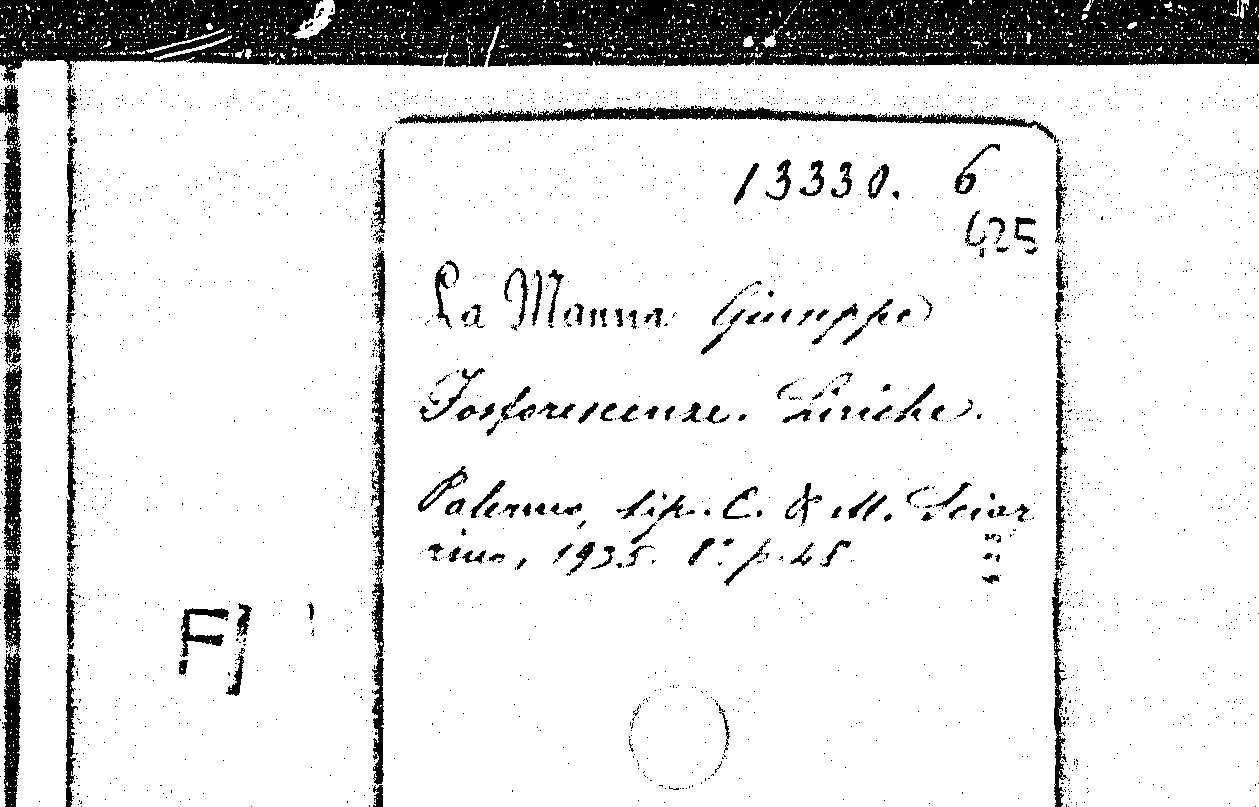 13330. 6
425
La Manna Giuseppe
Fosforescenze. Liriche.
Palermo, tip. C. & M. Sciar
rino, 1935. 8° p. 48
F]